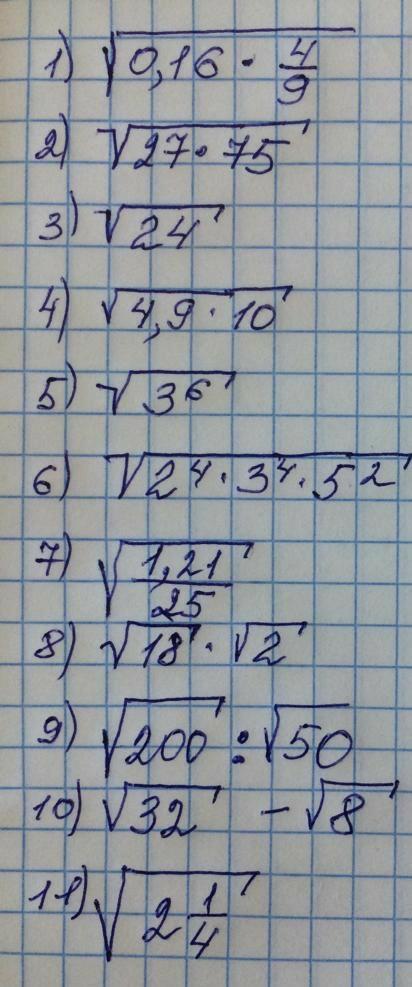 1) √(0,16 · 4/9)
2) √(27 · 75)
3) √24
4) √(4,9 · 10)
5) √(3⁶)
6) √(2⁴ · 3⁴ · 5²)
7) √(1,21/25)
8) √18 · √2
9) √200 : √50
10) √32 - √8
11) √(2 1/4)